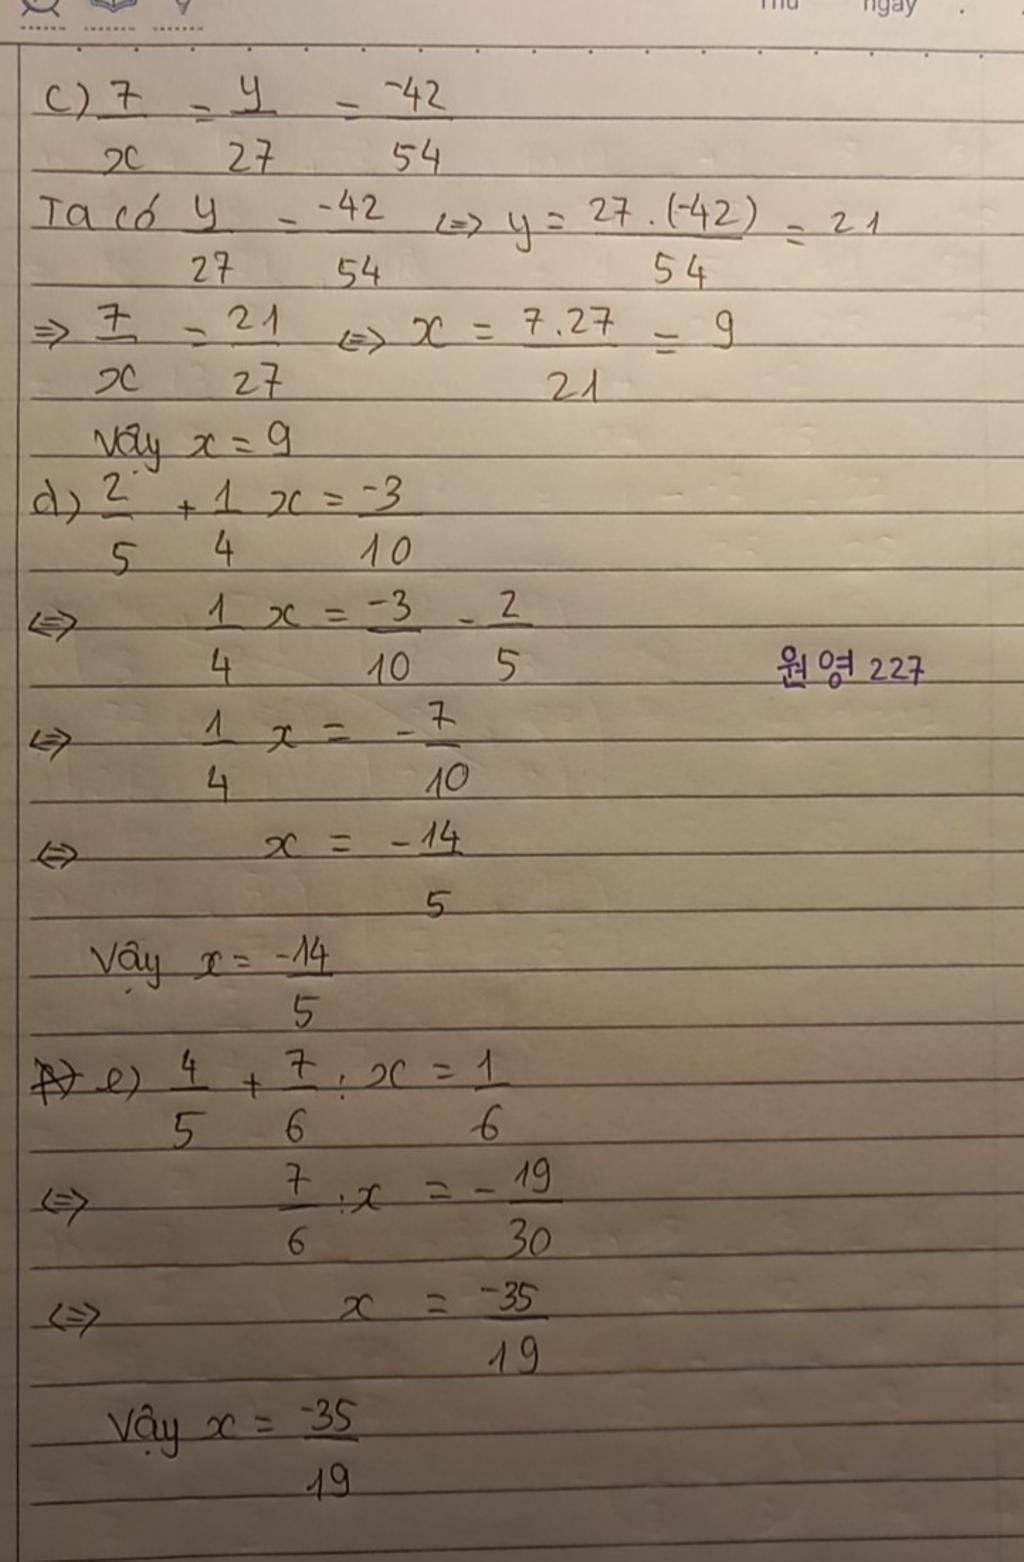 Thứ ngày .
c) 7/x = y/27 = -42/54
Ta có y/27 = -42/54 <=> y = 27.(-42)/54 = 21
=> 7/x = 21/27 <=> x = 7.27/21 = 9
Vậy x = 9
d) 2/5 + 1/4 x = -3/10
<=> 1/4 x = -3/10 - 2/5
원영 227
<=> 1/4 x = -7/10
<=> x = -14/5
Vậy x = -14/5
e) 4/5 + 7/6 : x = 1/6
<=> 7/6 : x = -19/30
<=> x = -35/19
Vậy x = -35/19